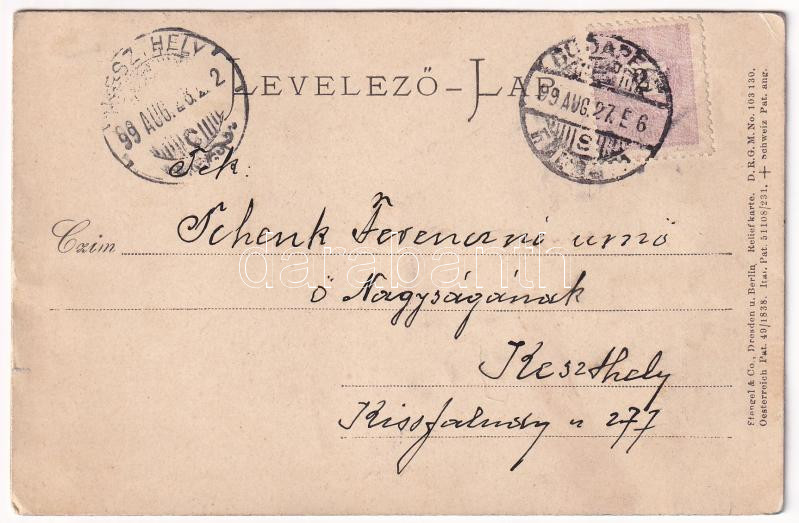 KESZTHELY
99 AUG. 28. 2
LEVELEZŐ-LAP
BUDAPEST
99 AUG. 27. E 6
Tek:
Czim Schenk Ferenczné urnő
ő Nagyságának
Keszthely
Kissfaludy u 277
darabanth
Stengel & Co., Dresden u. Berlin Reliefkarte. D. R. G. M. No. 103 130.
Oesterreich Pat. 49/1838. Ital. Pat. 51108/231. + Schweiz Pat. ang.